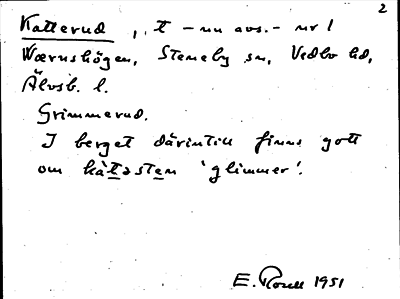 2
Katterud, t - nu avs. - nr 1
Wærnshögen, Steneby sn, Vedbo hd,
Älvsb. l.
Grimmerud.
I berget därintill finns gott
om kåtəsten 'glimmer'.
E. Rosell 1951